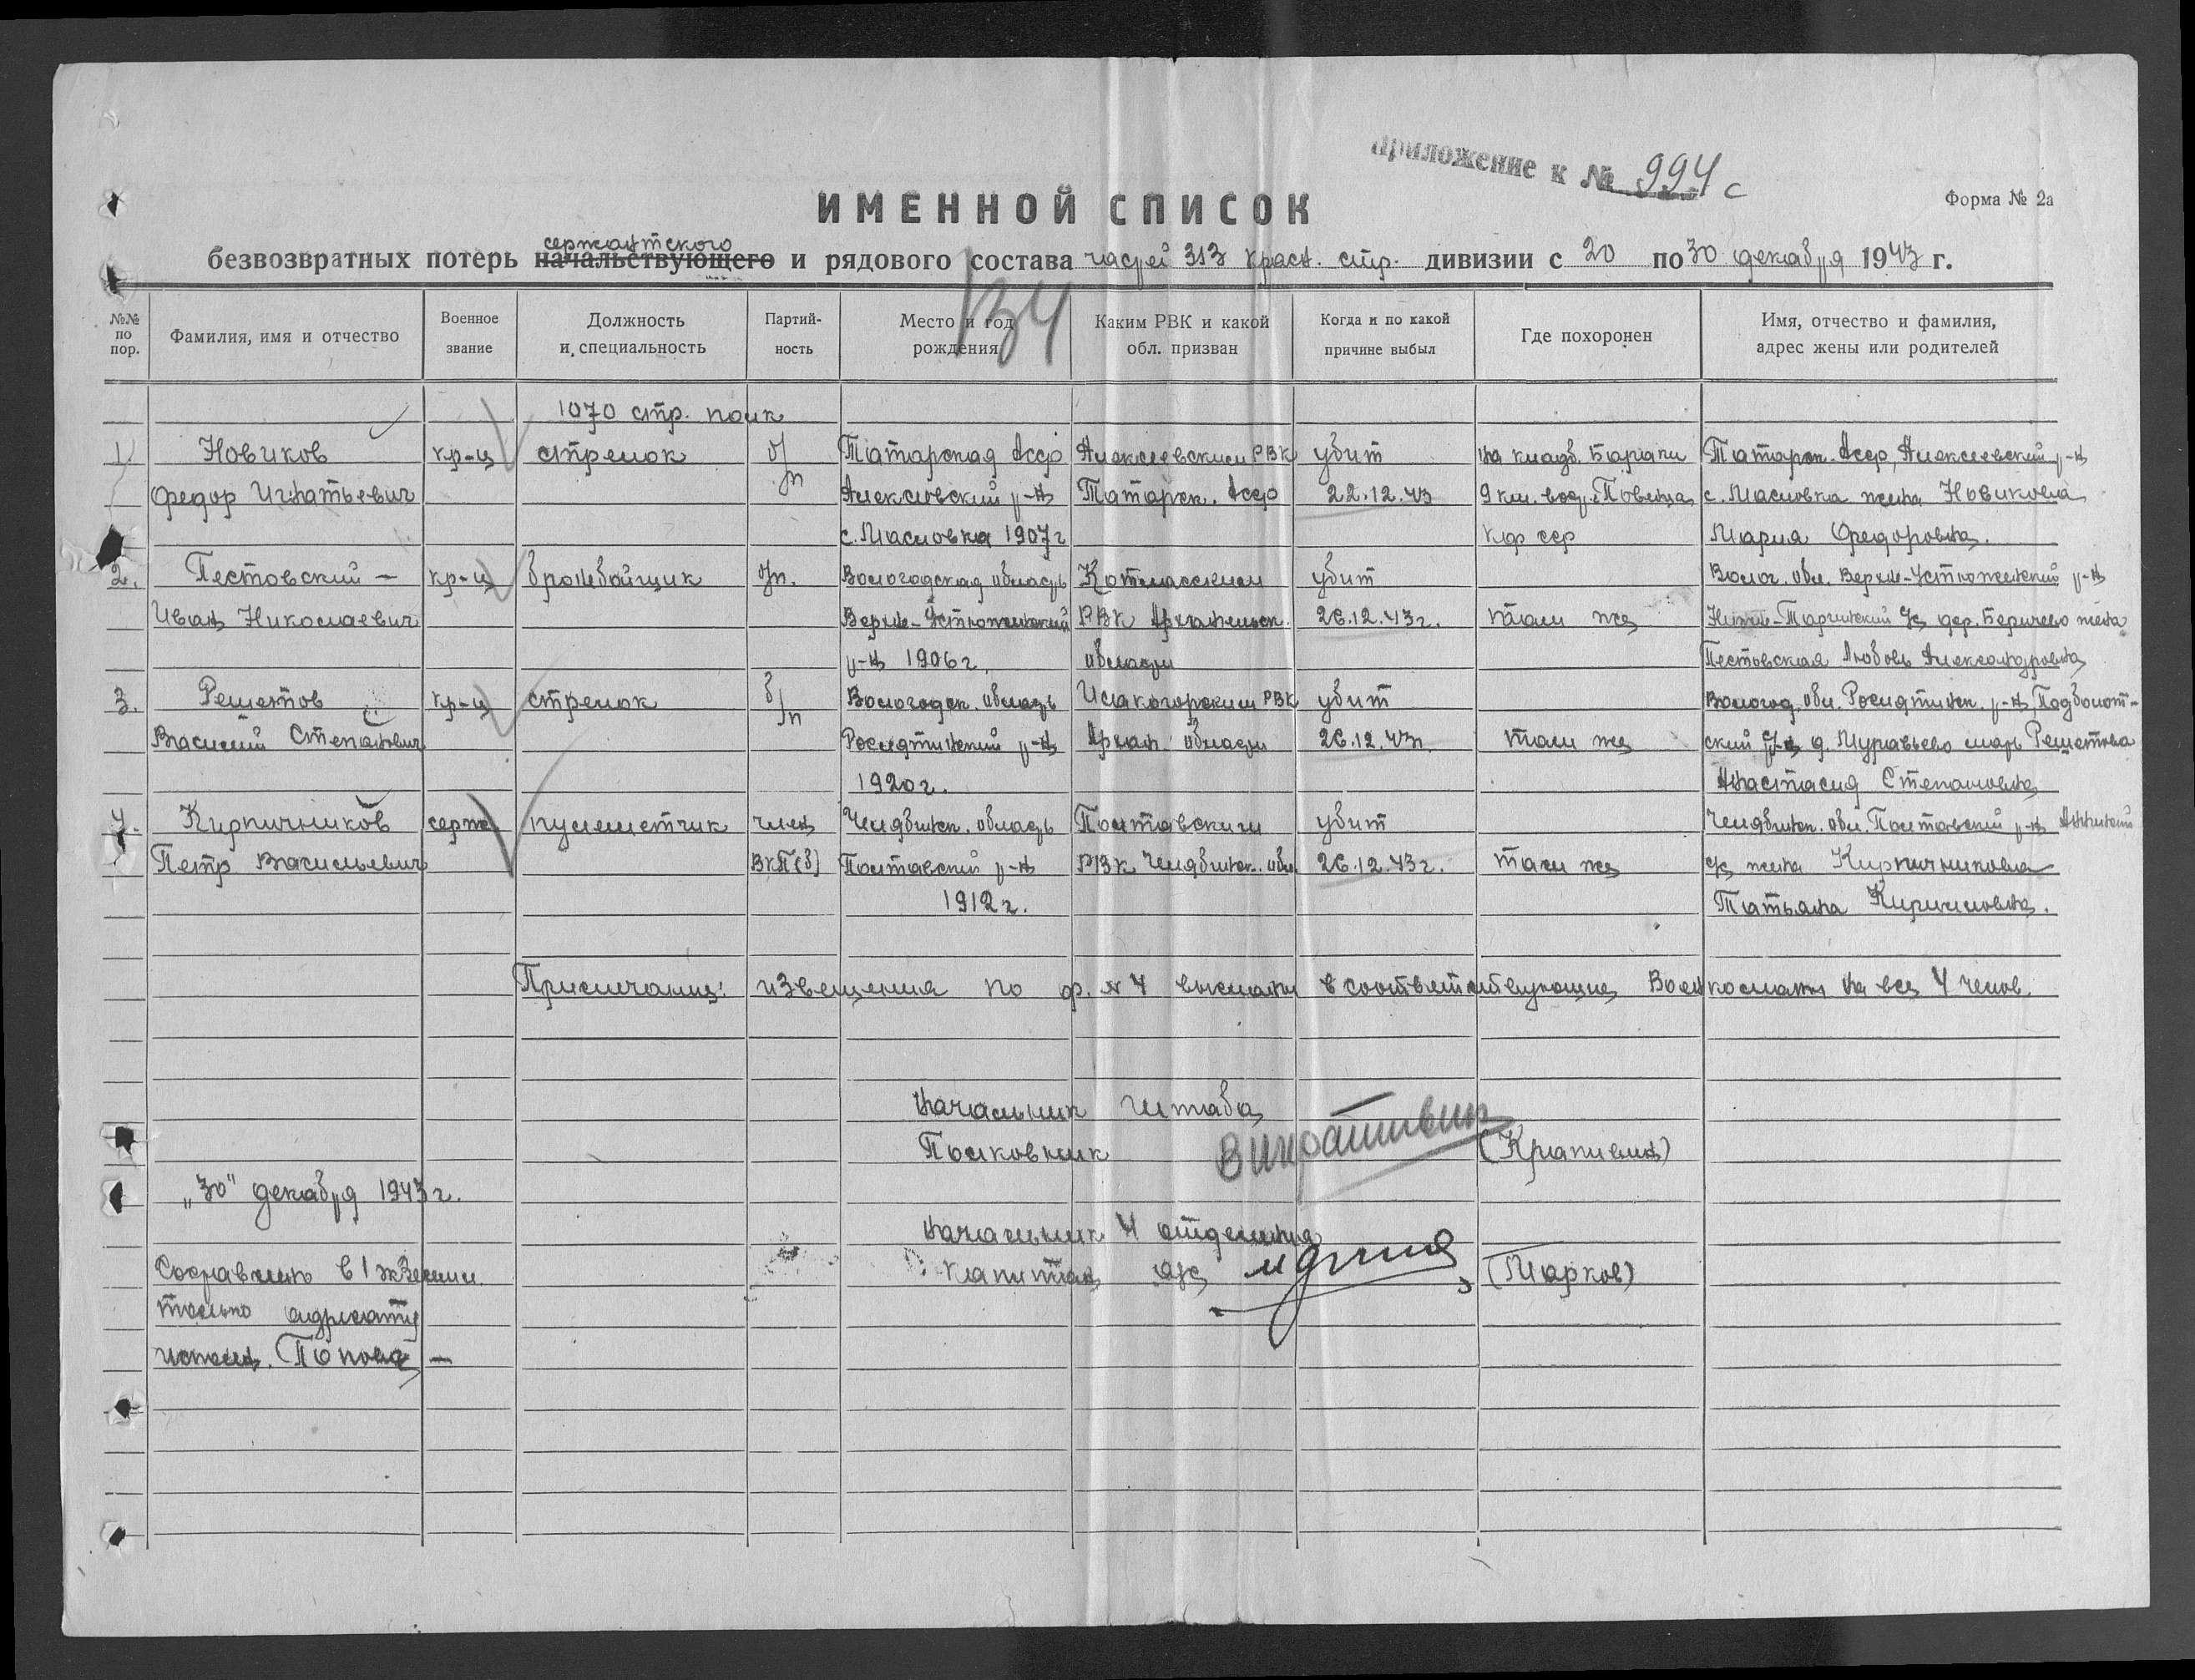 приложение к № 994 с
ИМЕННОЙ СПИСОК
Форма № 2а
сержантского
безвозвратных потерь начальствующего и рядового состава частей 313 красн. стр. дивизии с 20 по 30 декабря 1943 г.
134
№№ по пор. Фамилия, имя и отчество Военное звание Должность и специальность Партий-ность Место и год рождения Каким РВК и какой обл. призван Когда и по какой причине выбыл Где похоронен Имя, отчество и фамилия, адрес жены или родителей
1070 стр. полк
1 Новиков кр-ц стрелок б/п Татарская Асср Алексеевским РВК убит на кладб. Барлаки Татарск. Асср, Алексеевский р-н
Федор Игнатьевич Алексеевский р-н Татарск. Асср 22.12.43 9 км. вост. Повенца с. Масловка жена Новикова
с. Масловка 1907г Кф сср Мария Федоровна.
2. Пестовский - кр-ц бронебойщик б/п. Вологодская область Котласским убит Волог. обл. Верхне-Устюженский р-н
Иван Николаевич Верхне-Устюженский РВК Архангельск. 26.12.43г. там же дер. Беричево жена
р-н 1906г. области Пестовская Любовь Александровна
3. Решетов кр-ц стрелок б/п Вологодск. область Исакогорским РВК убит Вологод. обл. Рослятинск. р-н, Подболот-
Василий Степанович Рослятинский р-н Архан. области 26.12.43г. там же ский с/с д. Муравьево мать Решетова
1920г. Анастасия Степановна
4. Кирпичников серж. пулеметчик член Челябинск. область Полтавским убит Челябинск. обл. Полтавский р-н Аннинский
Петр Васильевич ВКП(б) Полтавский р-н РВК Челябинск. обл. 26.12.43г. там же с/с жена Кирпичникова
1912г. Татьяна Кирилловна.
Примечание: извещения по ф. № 4 высланы в соответствующие Военкоматы на всех 4 челов.
Начальник штаба
Полковник (Крапивин)
„30" декабря 1943г.
Начальник 4 отделения
Составлен в 1 экземпл. капитан а/с (Марков)
только адресату
исполн. Попова -